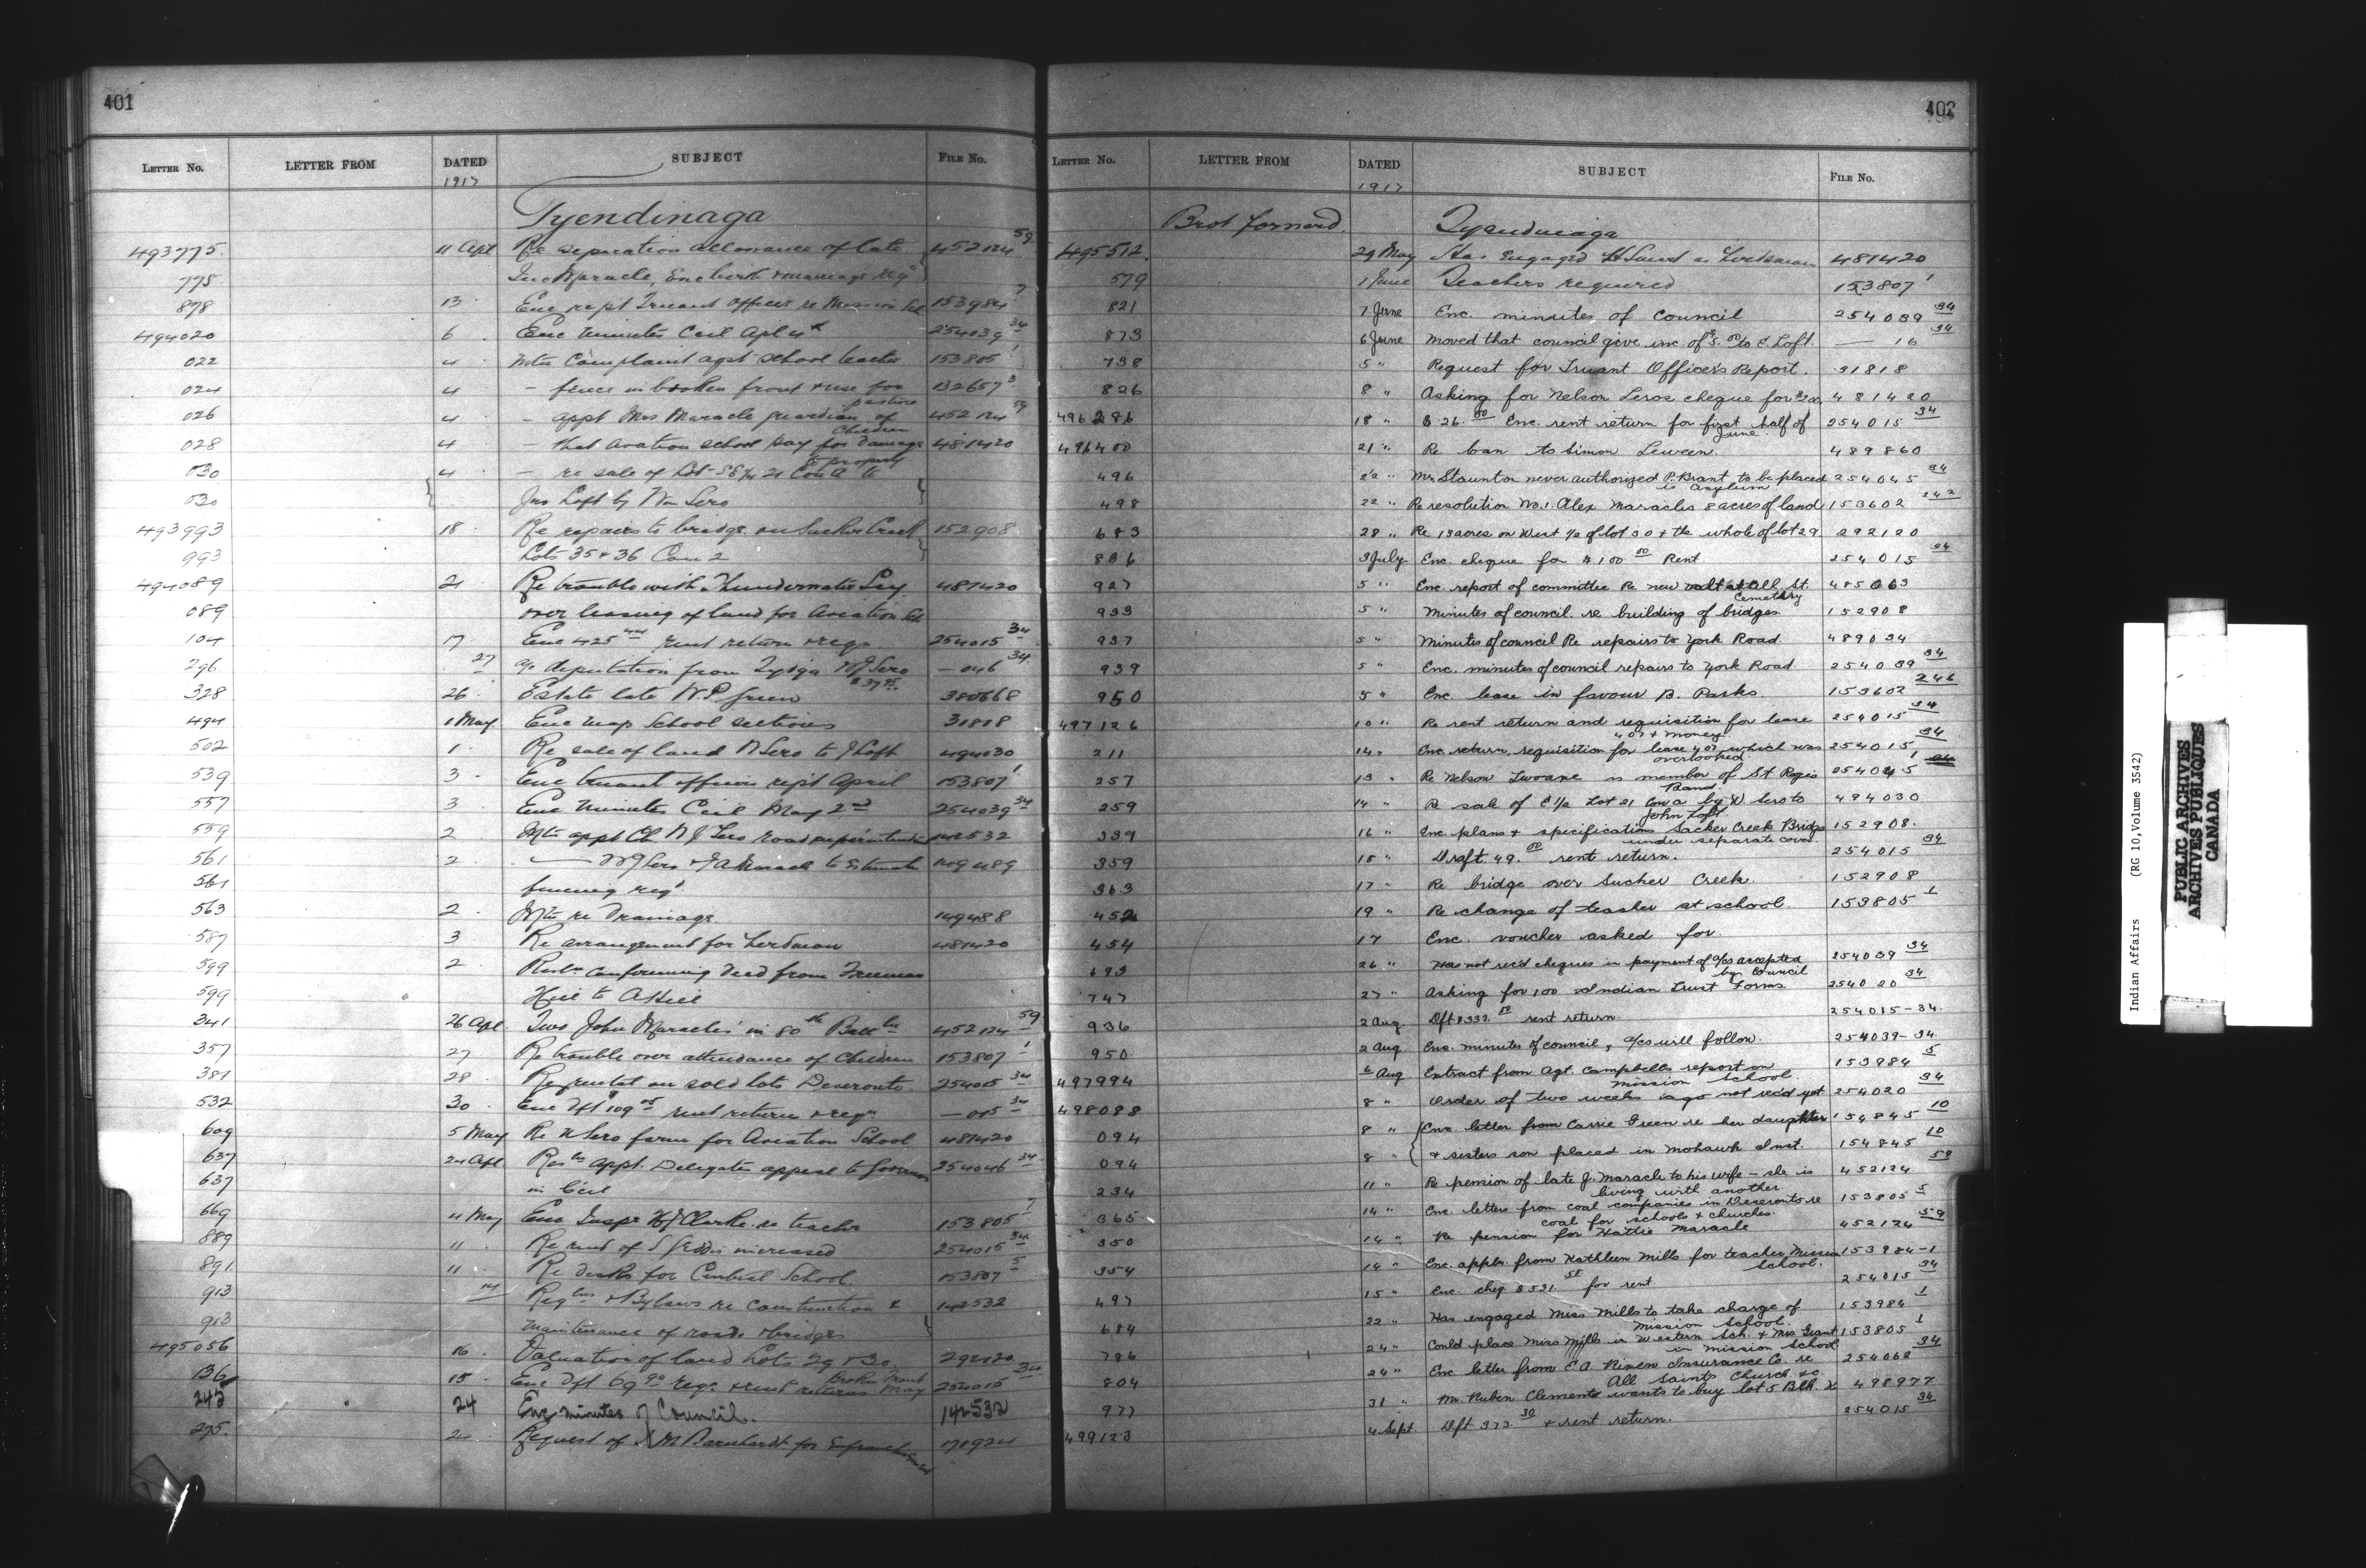 401
LETTER NO. LETTER FROM DATED SUBJECT FILE NO.
1917
Tyendinaga
493775 11 Apl Re separation allowance of late 452124 59
775 Jno Maracle, Enc birth & marriage reqn
878 13 Enc rept Truant Officer re Mission Sch 153984 7
494020 6 Enc minutes Ccil Apl 4th 254039 34
022 4 Mtn Complaint agst school teacher 153805 1
024 4 - fence in broken front & use for pasture 132657 3
026 4 - appt Mrs Maracle guardian of Children 452124 59
028 4 - that Aviation school pay for damage to property 481420
030 4 - re sale of Lot S E 1/4 21 Con A to
030 Jno Loft by Wm Sero
493993 18 Re repairs to bridge on Sucker Creek 152908
993 Lots 35 & 36 Con 2
494089 21 Re trouble with Thunderwater Soy 481420
089 over leasing of land for Aviation Sch
104 17 Enc 425 rent return & reqn 254015 34
296 27 a/c deputation from Tydga W J Sero $37 95 — 046 34
328 26 Estate late W. P. Green 380668
494 1 May Enc map School sections 31818
502 1 Re sale of land N Sero to J Loft 494030
539 3 Enc truant officers rept April 153807 1
557 3 Enc Minutes Ccil May 2nd 254039 34
559 2 Mtn appt Ch W J Sero road superintendent 142532
561 2 — W J Sero & J A Maracle to Estimate 149489
561 fencing reqd
563 2 Mtn re Drainage 149488
587 3 Re arrangement for herdman 481420
599 2 Resln confirming deed from Freeman
599 Hill to A Hill
341 26 Apl Two John Maracles' in 80th Battln 452124 59
357 27 Re trouble over attendance of Children 153807 1
381 28 Re rental on sold lots Deseronto 254015 34
532 30 Enc Dft $109 05 rent return & reqn — 015 34
609 5 May Re N Sero farm for Aviation School 481420
637 24 Apl Resln appt. Delegates appeal to Governor 254046 34
637 in Ccil
669 4 May Enc Inspr H J Clarke re teacher 153805 7
889 11 Re rent of S Geddis increased 254015 34
891 11 Re desks for Central School 153807 5
913 14 Reglns & Bylaws re construction & 142532
913 maintenance of roads & bridges
495056 16 Valuation of land Lots 29 & 30 292120
136 15 Enc Dft 69 90 reqn & rent returns May Broken Front 254015 34
243 24 Enc minutes of Council. 142532
275 24 Request of M Barnhardt for Enfranchisement 170924
402
LETTER NO. LETTER FROM DATED SUBJECT FILE NO.
1917
Brot forward. Tyendinaga
495512 29 May Has Engaged H Smart as Herdsman 481420
579 1 June Teachers required 153807 1
821 7 June Enc. minutes of council 254039 34
873 6 June Moved that council give inc. of $5.00 to C. Loft. — 16 34
738 5 " Request for Truant Officers Report. 31818
826 8 " Asking for Nelson Leros cheque for $300 481420
496286 18 " $ 26.00 Enc. rent return for first half of June. 254015 34
496400 21 " Re loan to Simon Leween. 489860
496 22 " Mr Staunton never authorized P. Brant to be placed in asylum 254045 34
498 22 " Re resolution No. 1. Alex Maracles 8 acres of land 153602 242
683 28 " Re 13 acres on West 1/2 of lot 30 & the whole of lot 29 292120
836 3 July Enc. cheque for $100 00 Rent. 254015 34
927 5 " Enc. report of committee Re new vault at All St. Cemetery 485063
933 5 " Minutes of council re building of bridges 152908
937 5 " Minutes of council Re repairs to York Road. 489034
939 5 " Enc. minutes of council repairs to York Road. 254039 34
950 5 " Enc. lease in favour B. Parks. 153602 246
497126 10 " Re rent return and requisition for lease 407 & money. 254015 34
211 14 " Enc. return, requisition for lease 407 which was overlooked 254015 34
257 13 " Re Nelson Lwoane is member of St Regis Band. 254045 1
259 14 " Re sale of E 1/2 Lot 21 Con A by W Sero to John Loft. 494030
339 16 " Enc. plans & specifications Sucker Creek Bridge under separate cover. 152908.
359 18 " Draft. 49.00 rent return. 254015 34
363 17 " Re bridge over Sucker Creek. 152908
452 19 " Re change of teacher at school. 153805 1
454 17 Enc. voucher asked for.
693 26 " Has not rec'd cheques in payment of a/cs accepted by council 254039 34
747 27 " Asking for 100 Indian Trust Forms. 254020 34
936 2 Aug. Dft $332. rent return. 254015-34.
950 2 Aug Enc. minutes of council, a/cs will follow. 254039-34.
497994 6 Aug Extract from Agt. Campbells report on mission School. 153984 5
498088 8 " Order of two weeks ago not rec'd yet 254020 34
094 8 " Enc. letter from Carrie Green re her daughter 154845 10
094 8 " & sisters son placed in Mohawk Inst. 154845 10
234 11 " Re pension of late J. Maracle to his wife - she is living with another 452124 59
365 14 " Enc. letters from coal companies in Deseronto re coal for schools & churches. 153805 5
350 14 " Re pension for Hattie Maracle 452124 59
354 14 " Enc. appln. from Kathleen Mills for teacher Mission School. 153984-1
497 15 " Enc. chq. $531. 58 for rent. 254015 34
684 22 " Has engaged Miss Mills to take charge of mission School. 153984 1
786 24 " Could place Miss Mills in Western Sch. & Mrs Grant in mission school 153805 1
804 24 " Enc. letter from E.A. Rixen Insurance Co. re All Saints Church &c. 254068 34
977 31 " Mr. Ruben Clements wants to buy lot 5 Blk. X 498977
499123 4 Sept. Dft 373.30 & rent return. 254015 34
Indian Affairs (RG 10, Volume 3542)
PUBLIC ARCHIVES
ARCHIVES PUBLIQUES
CANADA